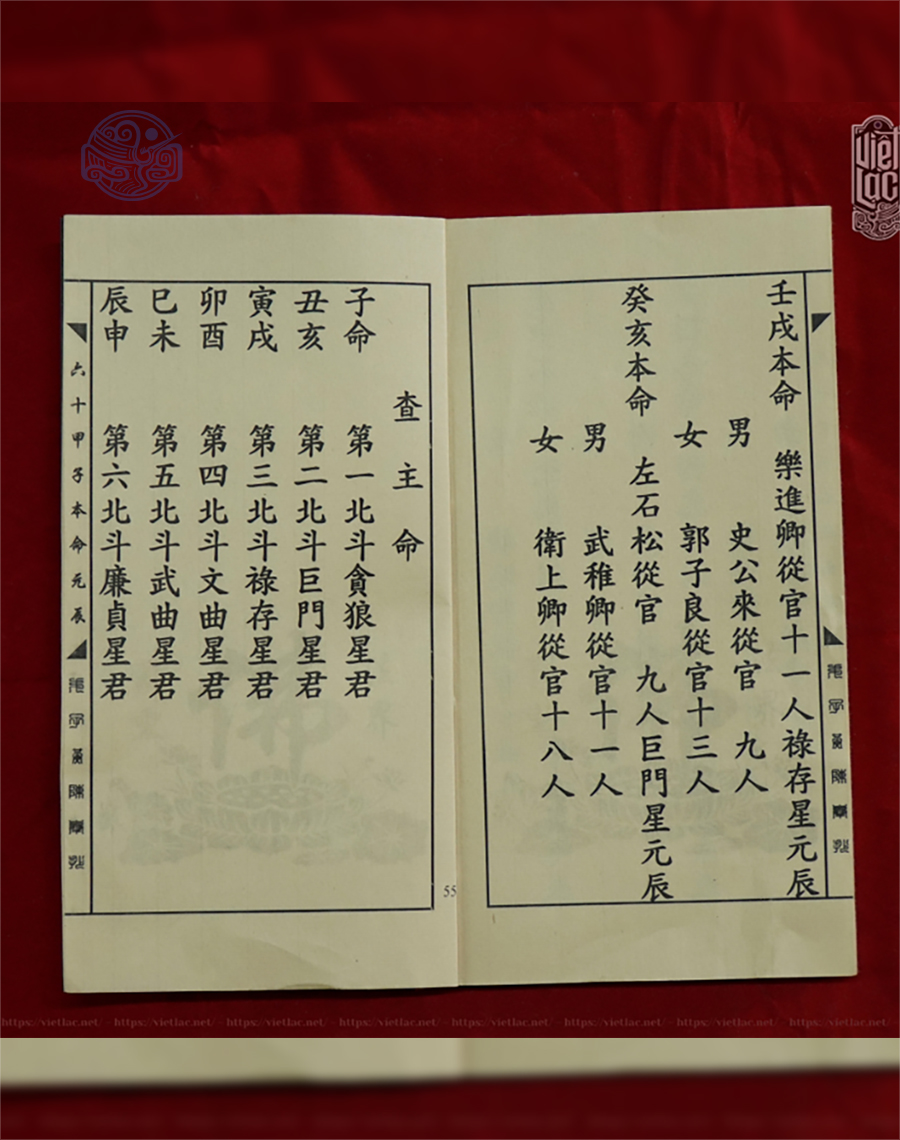 壬戌本命 樂進卿從官十一人祿存星元辰
男 史公來從官 九人
女 郭子良從官十三人
癸亥本命 左石松從官 九人巨門星元辰
男 武稚卿從官十一人
女 衛上卿從官十八人
查主命
子命 第一北斗貪狼星君
丑亥 第二北斗巨門星君
寅戌 第三北斗祿存星君
卯酉 第四北斗文曲星君
巳未 第五北斗武曲星君
辰申 第六北斗廉貞星君
六十甲子本命元辰
55
Việt Lạc
https://vietlac.net/ - https://vietlac.net/ - https://vietlac.net/ - https://vietlac.net/ - https://vietlac.net/ - https://vietlac.net/ - https://vietlac.net/ - https://vietlac.net/